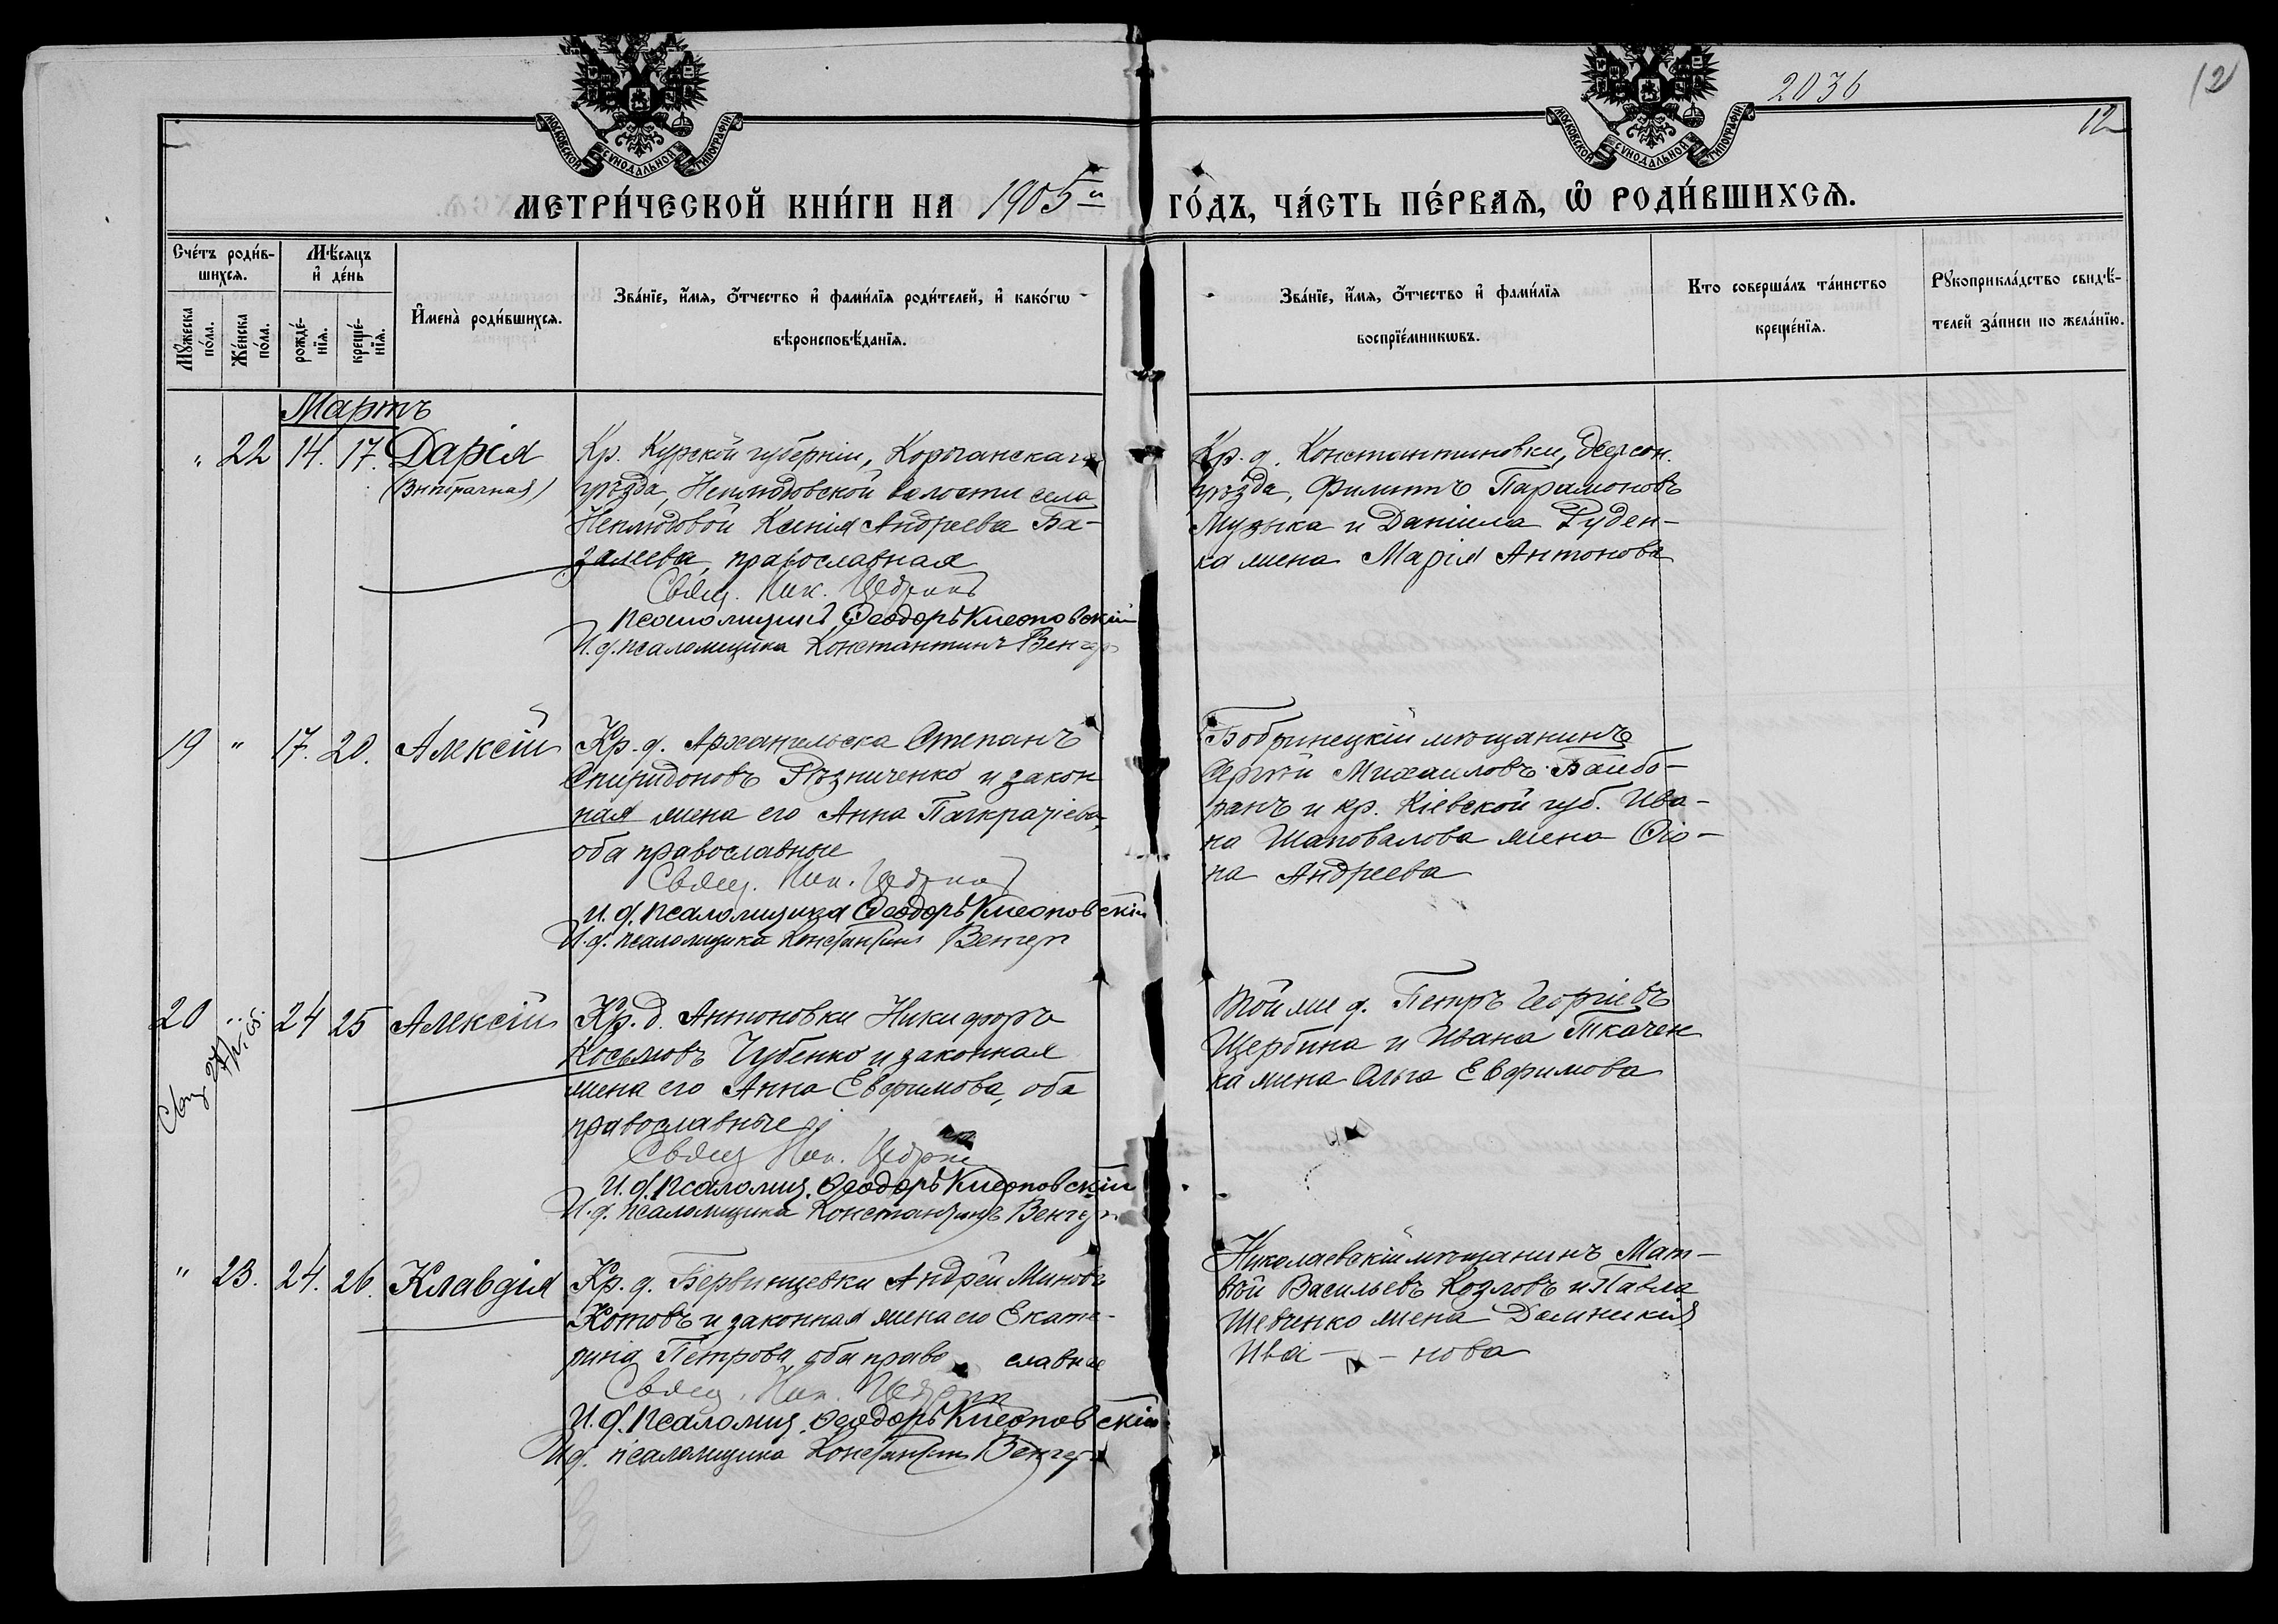 2036
12
12
МОСКОВСКОЙ СѴНОДАЛЬНОЙ ТИПОГРАФІИ
МОСКОВСКОЙ СѴНОДАЛЬНОЙ ТИПОГРАФІИ
МЕТРИ́ЧЕСКОЙ КНИ́ГИ НА 1905й ГО́ДЪ, ЧА́СТЬ ПЕ́РВАѦ, Ѽ РОДИ́ВШИХСѦ.
Сче́тъ роди́в-
шихсѧ.
Мѣ́сѧцъ
и҆ де́нь
Мꙋ́жеска по́ла.
Же́нска по́ла.
рожде́-
нїѧ.
креще́-
нїѧ.
И҆мена̀ роди́вшихсѧ.
Зва́нїе, и҆́мѧ, ѻ҆́тчество и҆ фами́лїѧ роди́телей, и҆ како́гѡ
вѣроисповѣ́данїѧ.
Зва́нїе, и҆́мѧ, ѻ҆́тчество и҆ фами́лїѧ
воспрїе́мникѡвъ.
Кто соверша́лъ та́инство
креще́нїѧ.
Рꙋкоприкла́дство свидѣ́-
телей за́писи по жела́нїю.
Мартъ
" 22 14. 17. Дарія
(Внѣбрачная)
Кр. Курской губерніи, Корочанскаго
уѣзда, Неклюдовской волости села
Неклюдовой Ксенія Андреева Ба-
залеева, православная
Свящ. Ник.
Псаломщикъ Ѳеодоръ Клеоповскій
И. д. псаломщика Константинъ Венгеръ
Кр. д. Константиновки, Херсон.
уѣзда, Филиппъ Парамоновъ
Музыка и Даніила Руден-
ка жена Марія Антонова
19 " 17. 20. Алексій
Кр. д. Архангельска Степанъ
Спиридоновъ Рѣзниченко и закон
ная жена его Анна Панкратіева,
оба православные
Свящ. Ник.
И. д. псаломщика Ѳеодоръ Клеоповскій
И. д. псаломщика Константинъ Венгеръ
Бобринецкій мѣщанинъ
Сергѣй Михаиловъ Байбо-
ранъ и кр. Кіевской губ. Ива-
на Шаповалова жена Ѳіо-
на Андреева
20 " 24 25 Алексій
Кр. д. Антоновки Никифоръ
Косьмовъ Чубенко и законная
жена его Анна Евфимова, оба
православные
Свящ. Ник.
И. д. псаломщ. Ѳеодоръ Клеоповскій
И. д. псаломщика Константинъ Венгеръ
Той же д. Петръ Георгіевъ
Щербина и Ивана Ткачен
ка жена Ольга Евфимова
" 23. 24. 26. Клавдія
Кр. д. Бервинцевки Андрей Миновъ
Котовъ и законная жена его Екате-
рина Петрова, оба православные
Свящ. Ник.
И. д. псаломщ. Ѳеодоръ Клеоповскій
И. д. псаломщика Константинъ Венгеръ
Николаевскій мѣщанинъ Мат-
вѣй Васильевъ Козловъ и Павла
Шевченко жена Домникія
Ива- - нова